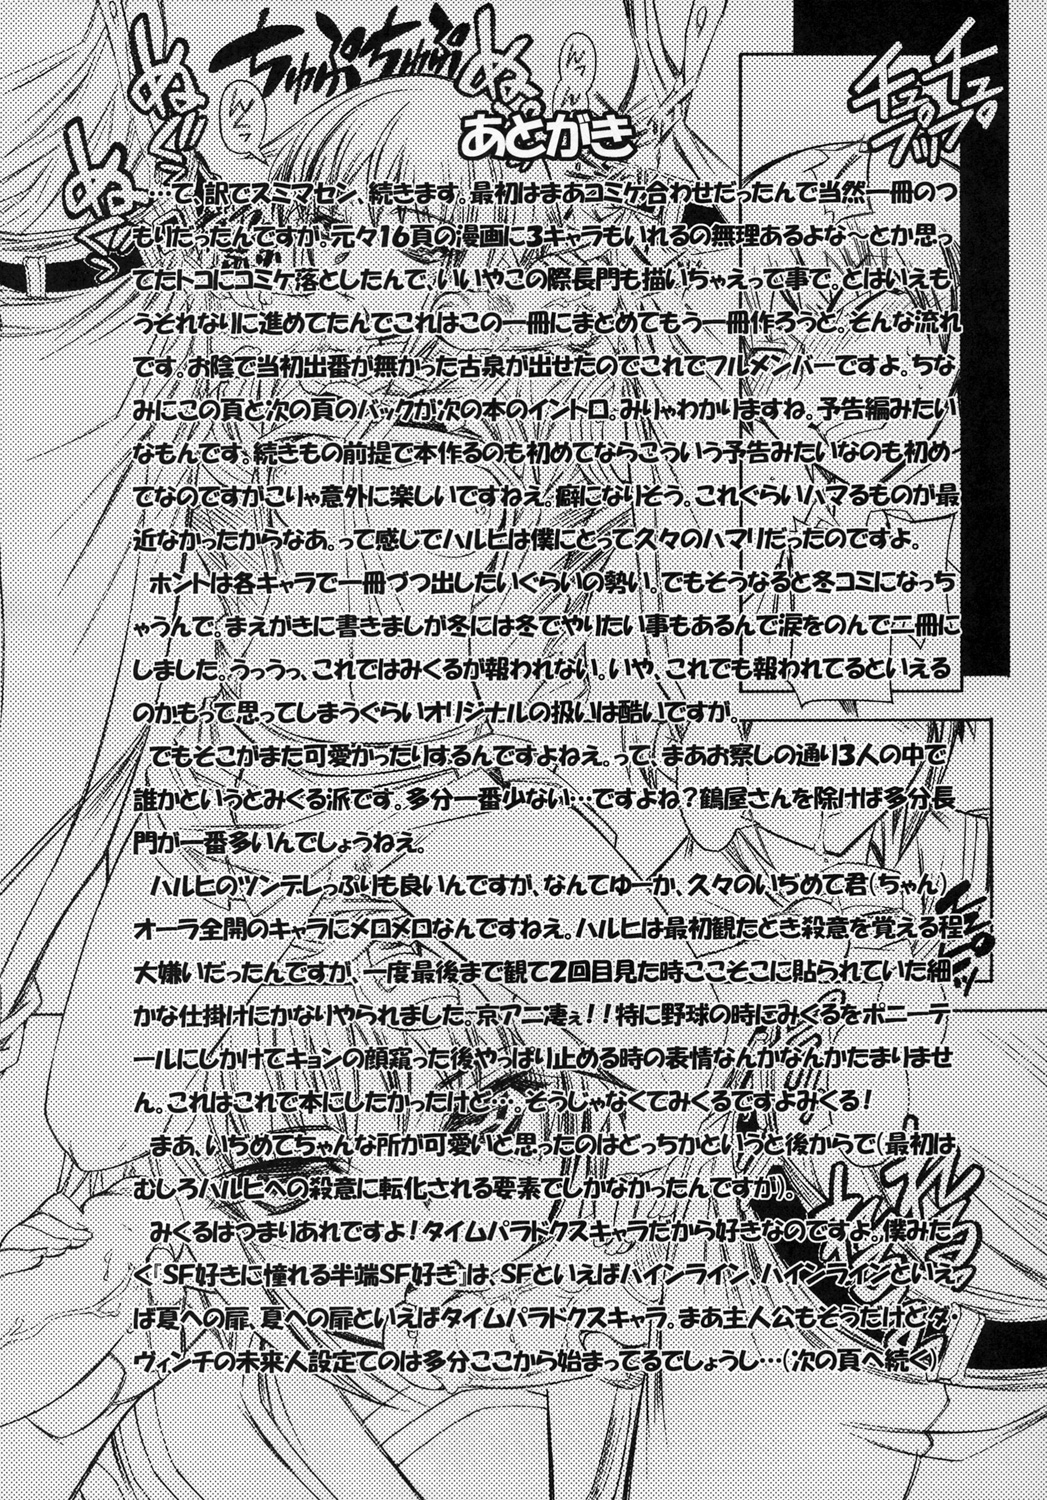 あとがき
…て、訳でスミマセン、続きます。最初はまあコミケ合わせだったんで当然一冊のつ
もりだったんですが。元々16頁の漫画に3キャラもいれるの無理あるよな～とか思っ
てたトコにコミケ落としたんで、いいやこの際長門も描いちゃえって事で。とはいえも
うそれなりに進めてたんでこれはこの一冊にまとめてもう一冊作ろうと。そんな流れ
です。お陰で当初出番が無かった古泉が出せたのでこれでフルメンバーですよ。ちな
みにこの頁と次の頁のバックが次の本のイントロ。みりゃわかりますね。予告編みたい
なもんです。続きもの前提で本作るのも初めてならこういう予告みたいなのも初め
てなのですがこりゃ意外に楽しいですねえ。癖になりそう。これぐらいハマるものが最
近なかったからなあ。って感じでハルヒは僕にとって久々のハマリだったのですよ。
ホントは各キャラで一冊づつ出したいぐらいの勢い。でもそうなると冬コミになっち
ゃうんで。まえがきに書きましが冬には冬でやりたい事もあるんで涙をのんで二冊に
しました。うっうっ、これではみくるが報われない。いや、これでも報われてるといえる
のかもって思ってしまうぐらいオリジナルの扱いは酷いですが。
でもそこがまた可愛がったりするんですよねえ。って、まあお察しの通り3人の中で
誰かというとみくる派です。多分一番少ない…ですよね？鶴屋さんを除けば多分長
門が一番多いんでしょうねえ。
ハルヒのツンデレっぷりも良いんですが、なんてゆーか、久々のいぢめて君(ちゃん)
オーラ全開のキャラにメロメロなんですねえ。ハルヒは最初観たとき殺意を覚える程
大嫌いだったんですが、一度最後まで観て2回目見た時ここそこに貼られていた細
かな仕掛けにかなりやられました。京アニ凄ぇ！！特に野球の時にみくるをポニーテ
ールにしかけてキョンの顔窺った後やっぱり止める時の表情なんかなんかたまりませ
ん。これはこれで本にしたかったけど…。そうじゃなくてみくるですよみくる！
まあ、いぢめてちゃんな所が可愛いと思ったのはどっちかというと後からで(最初は
むしろハルヒへの殺意に転化される要素でしかなかったんですが)。
みくるはつまりあれですよ！タイムパラドクスキャラだから好きなのですよ。僕みた
く『SF好きに憧れる半端SF好き』は、SFといえばハインライン、ハインラインといえ
ば夏への扉、夏への扉といえばタイムパラドクスキャラ。まあ主人公もそうだけどダ・
ヴィンチの未来人設定てのは多分ここから始まってるでしょうし…(次の頁へ続く)